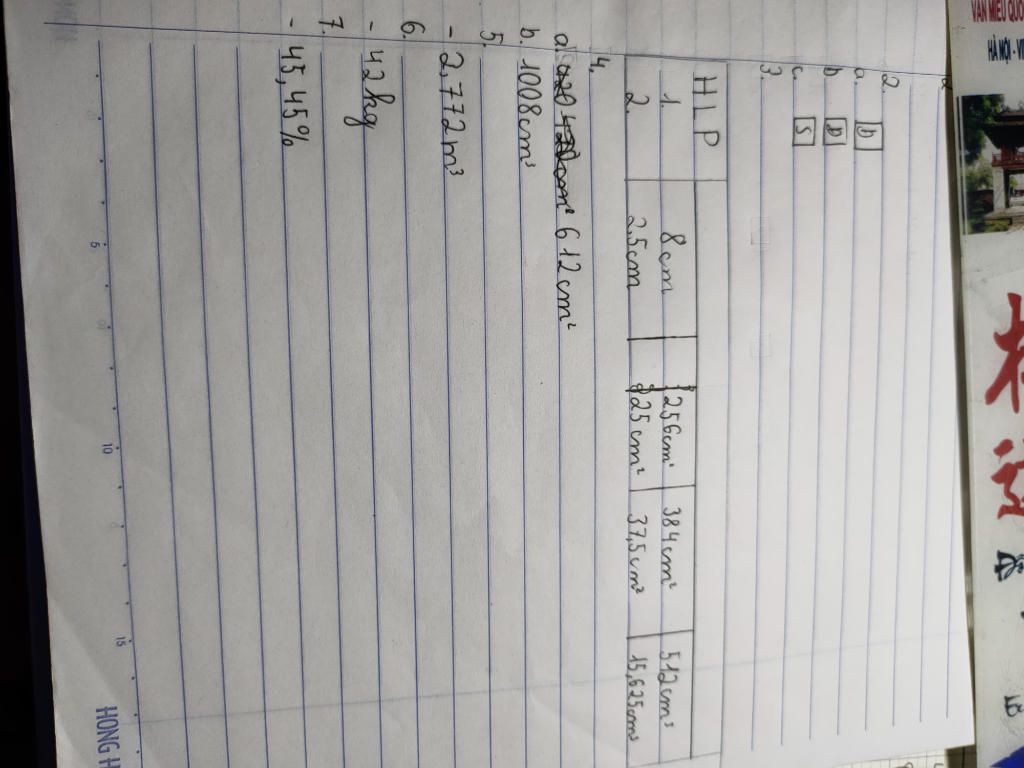 2.
a. Đ
b Đ
c S
3.
HLP
1. 8cm 256cm² 384cm² 512cm³
2. 2,5cm 25cm² 37,5cm² 15,625cm³
4.
a. 612cm²
b. 1008cm³
5.
- 2,772m³
6.
- 42kg
7.
- 45,45%
5 10 15
HONG H
VĂN MIẾU QUỐC
HÀ NỘI - VI